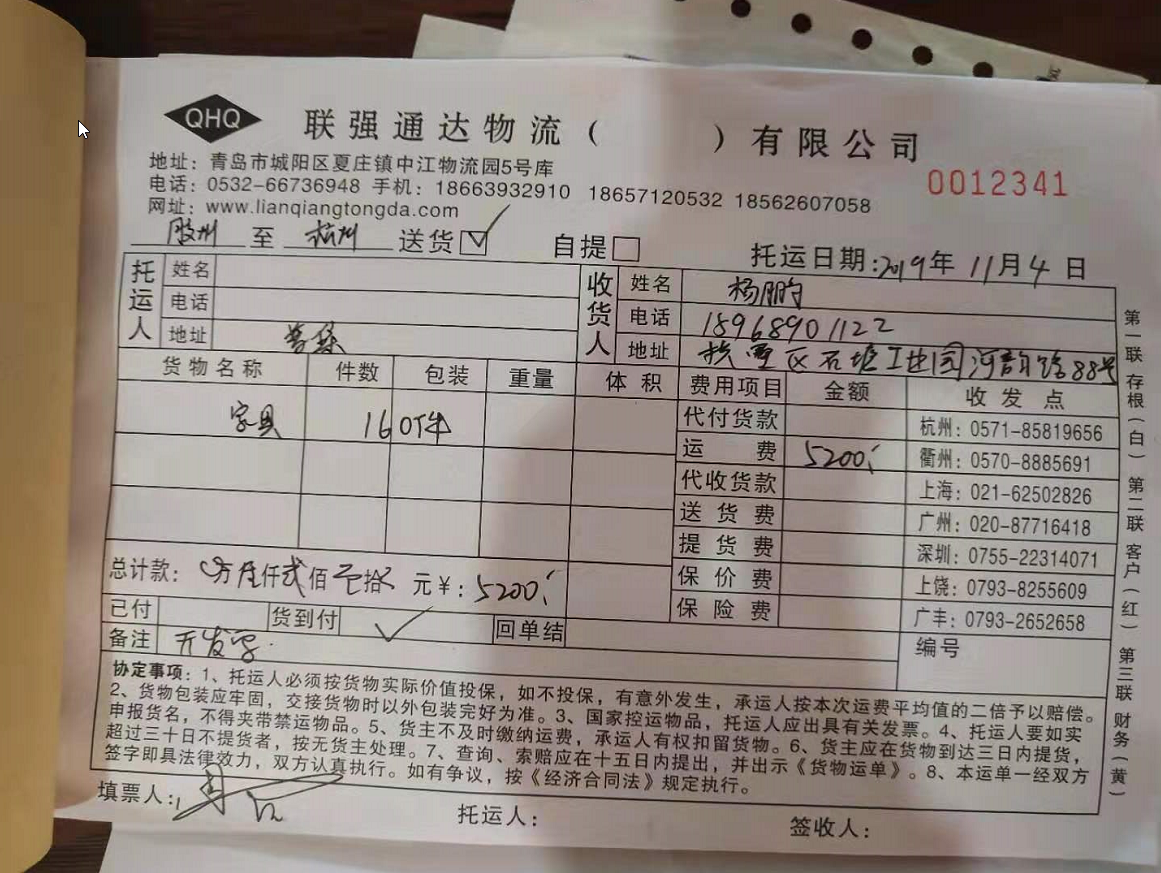 QHQ 联强通达物流（ ）有限公司
地址：青岛市城阳区夏庄镇中江物流园5号库
电话：0532-66736948 手机：18663932910 18657120532 18562607058
网址：www.lianqiangtongda.com
0012341
胶州 至 杭州 送货☑ 自提□ 托运日期：2019年11月4日
托运人 姓名 收货人 姓名 杨鹏
电话 电话 18968901122
地址 地址 拱墅区石塘工业园河韵路88号
货物名称 件数 包装 重量 体积 费用项目 金额 收发点
家具 160件 代付货款 杭州：0571-85819656
运费 5200 衢州：0570-8885691
代收货款 上海：021-62502826
送货费 广州：020-87716418
提货费 深圳：0755-22314071
保价费 上饶：0793-8255609
保险费 广丰：0793-2652658
总计款： 万 仟贰佰 拾 元￥：5200
已付 货到付 ✓ 回单结 编号
备注
协定事项：1、托运人必须按货物实际价值投保，如不投保，有意外发生，承运人按本次运费平均值的二倍予以赔偿。
2、货物包装应牢固，交接货物时以外包装完好为准。3、国家控运物品，托运人应出具有关发票。4、托运人要如实
申报货名，不得夹带禁运物品。5、货主不及时缴纳运费，承运人有权扣留货物。6、货主应在货物到达三日内提货，
超过三十日不提货者，按无货主处理。7、查询、索赔应在十五日内提出，并出示《货物运单》。8、本运单一经双方
签字即具法律效力，双方认真执行。如有争议，按《经济合同法》规定执行。
填票人： 托运人： 签收人：
第一联 存根（白） 第二联 客户（红） 第三联 财务（黄）